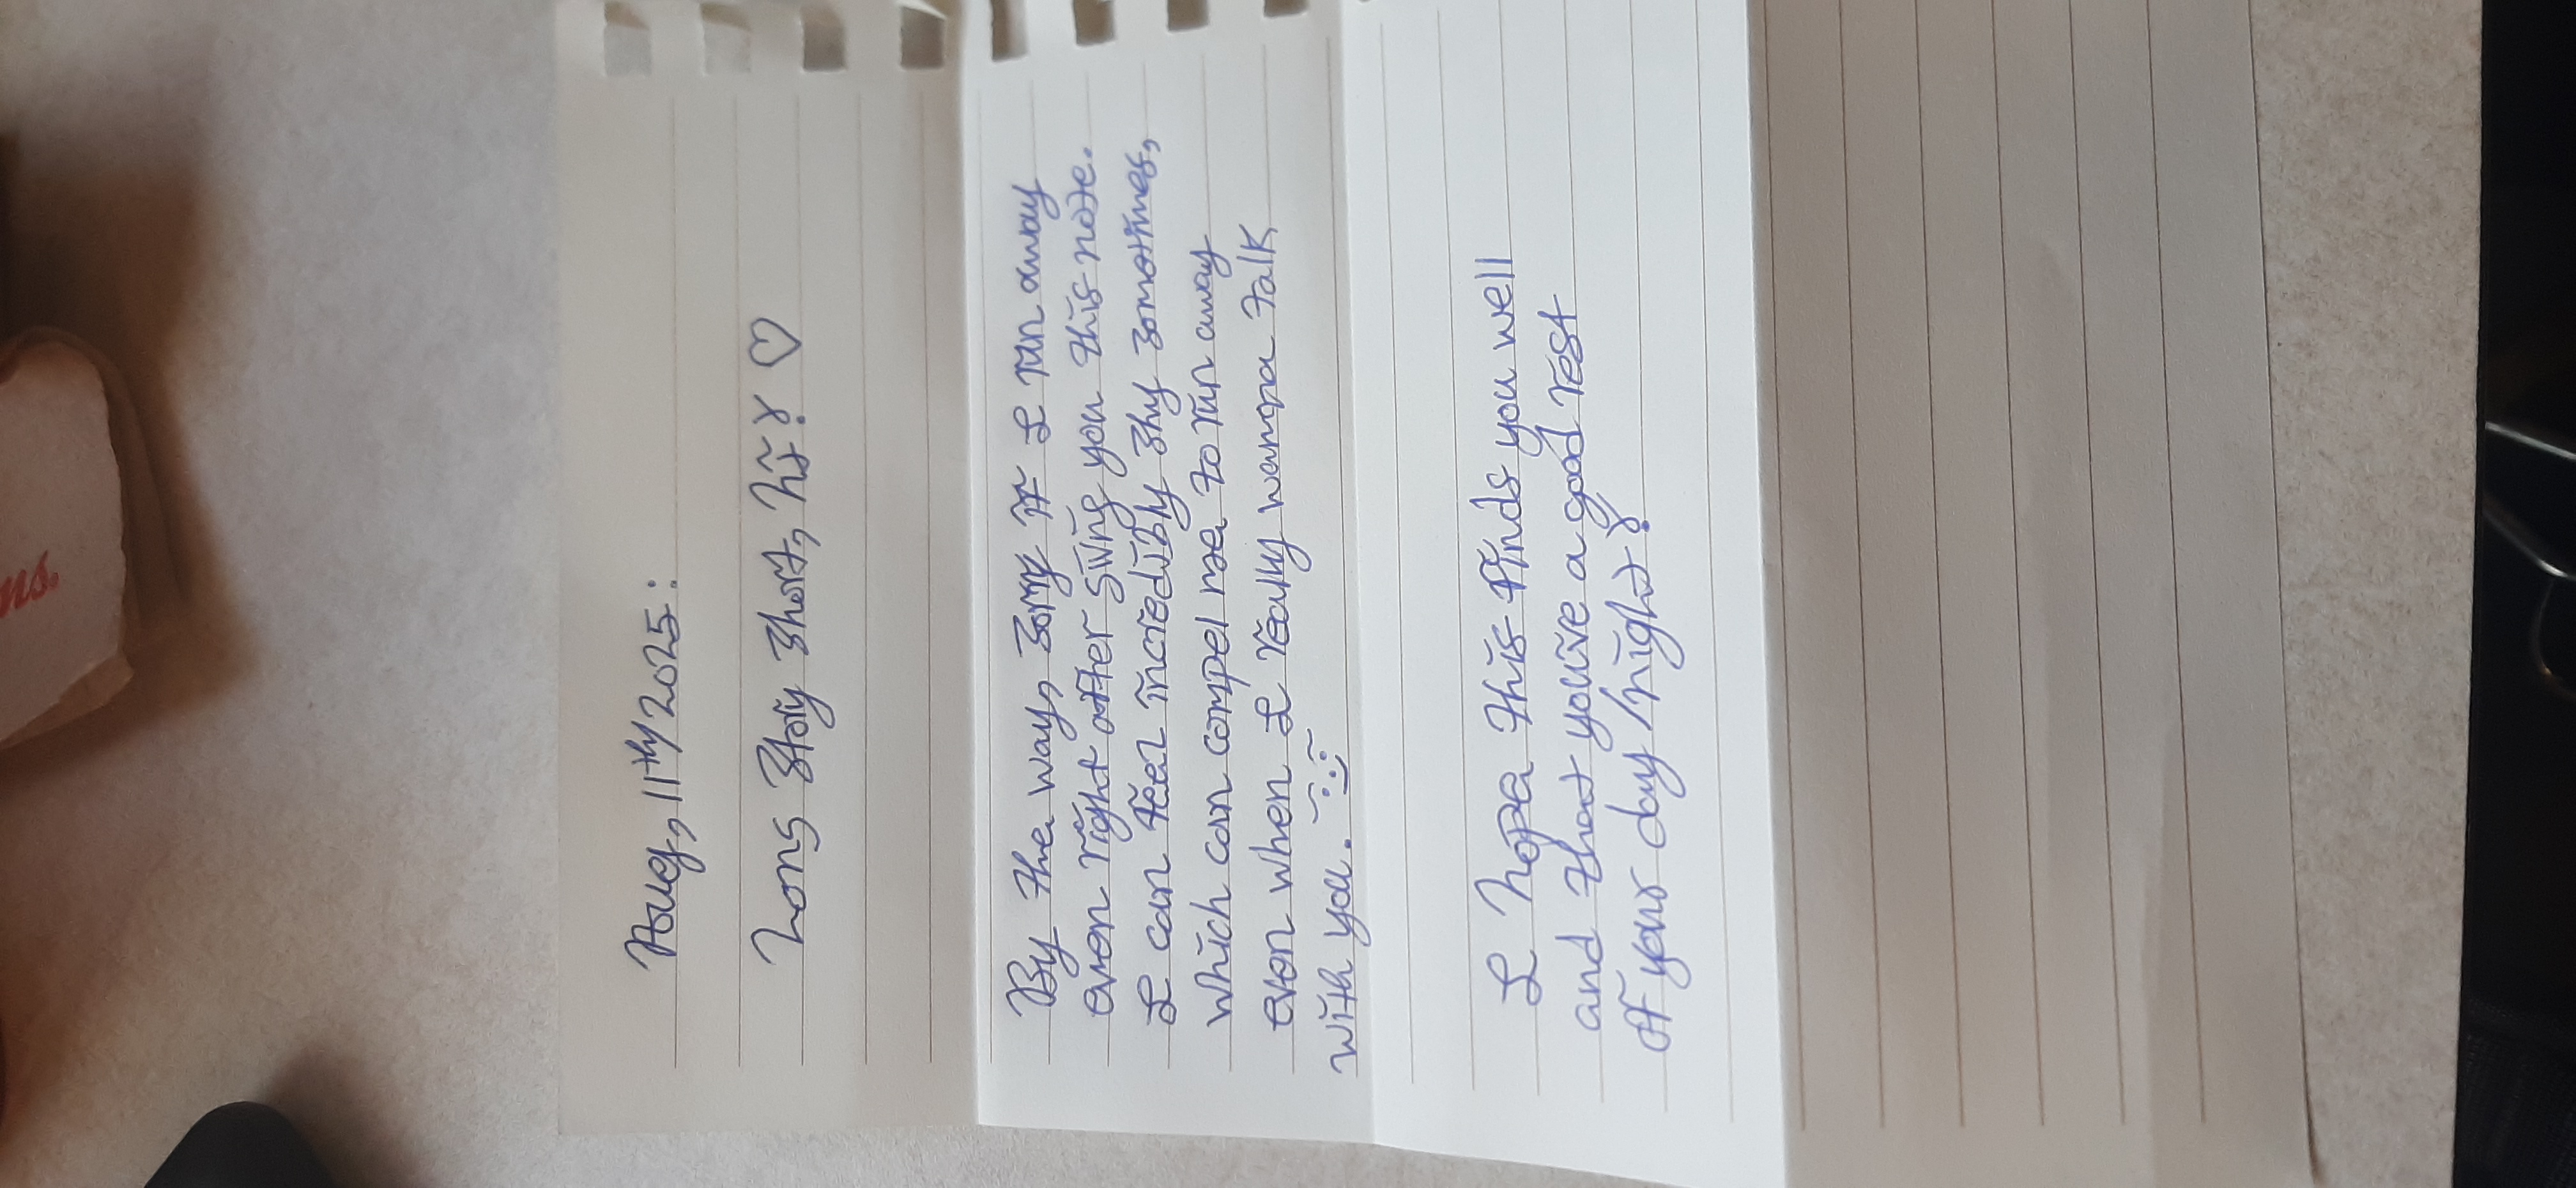 Aug, 11th/2025:
Long Story Short, hi! ♡
By the way, sorry if I run away
even right after giving you this note.
I can feel incredibly shy sometimes,
which can compel me to run away
even when I really wanna talk
with you.
I hope this finds you well
and that you've a good rest
of your day/night!
ns.